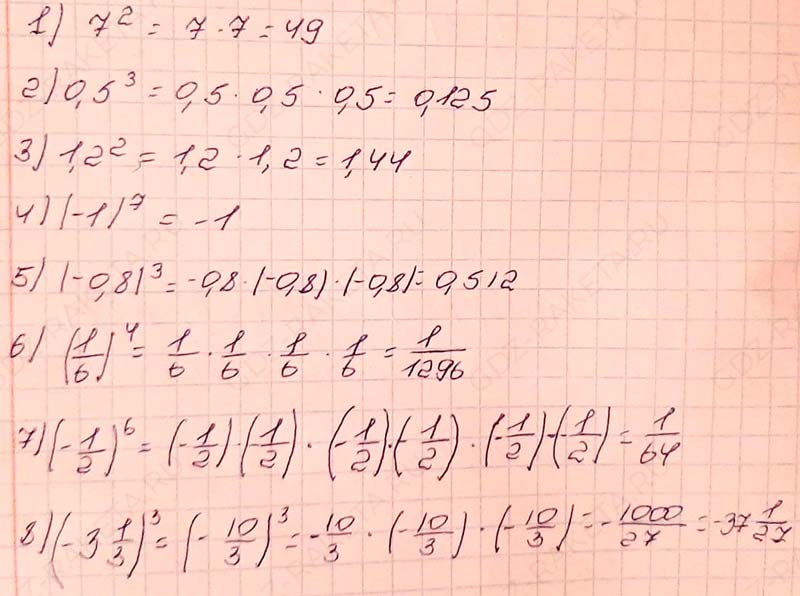 1) 7² = 7 · 7 = 49
2) 0,5³ = 0,5 · 0,5 · 0,5 = 0,125
3) 1,2² = 1,2 · 1,2 = 1,44
4) (-1)⁷ = -1
5) (-0,8)³ = -0,8 · (-0,8) · (-0,8) = 0,512
6) (1/6)⁴ = 1/6 · 1/6 · 1/6 · 1/6 = 1/1296
7) (-1/2)⁶ = (-1/2) · (-1/2) · (-1/2) · (-1/2) · (-1/2) · (-1/2) = 1/64
8) (-3 1/3)³ = (-10/3)³ = -10/3 · (-10/3) · (-10/3) = -1000/27 = -37 1/27
GDZ-RAKETA.RU